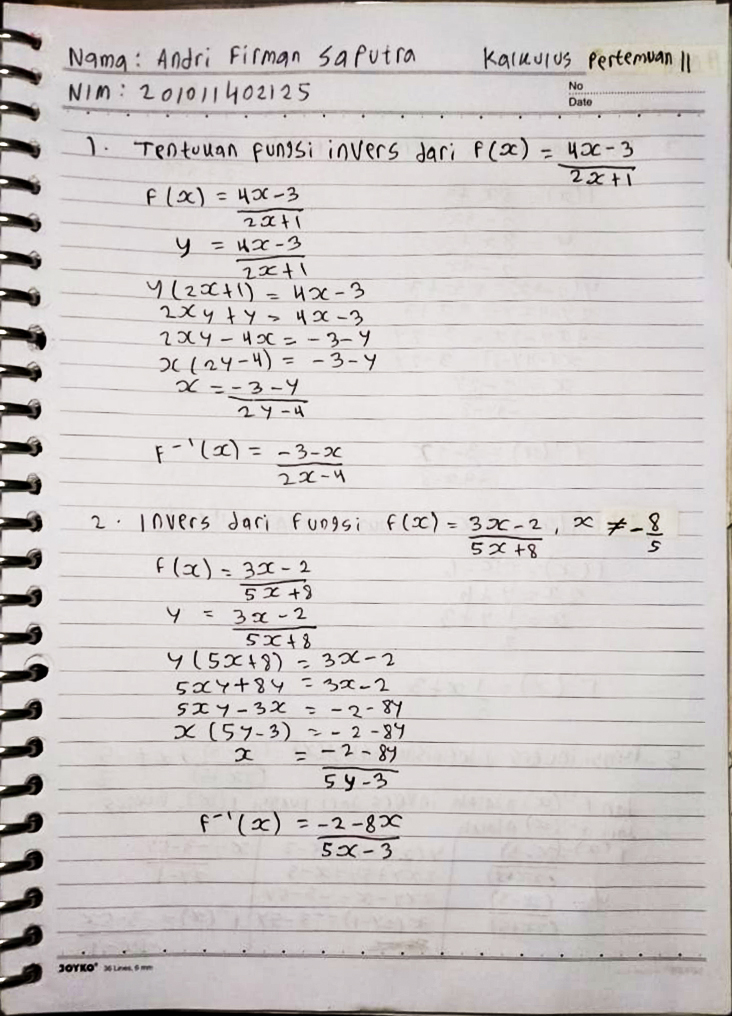 Nama : Andri Firman Saputra Kalkulus Pertemuan 11
NIM : 201011402125
No
Date
1. Tentukan fungsi invers dari f(x) = 4x-3
2x+1
f(x) = 4x-3
2x+1
y = 4x-3
2x+1
y(2x+1) = 4x-3
2xy+y = 4x-3
2xy-4x = -3-y
x(2y-4) = -3-y
x = -3-y
2y-4
f⁻¹(x) = -3-x
2x-4
2. Invers dari fungsi f(x) = 3x-2, x ≠ -8
5x+8 5
f(x) = 3x-2
5x+8
y = 3x-2
5x+8
y(5x+8) = 3x-2
5xy+8y = 3x-2
5xy-3x = -2-8y
x(5y-3) = -2-8y
x = -2-8y
5y-3
f⁻¹(x) = -2-8x
5x-3
JOYKO® 36 Lines, 6 mm